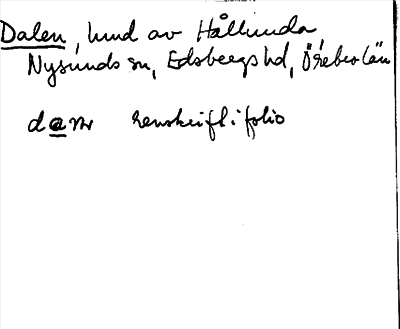 Dalen, lund av Hållunda,
Nysunds sn, Edsbergs hd, Örebro län
d@nr renskrift i folio